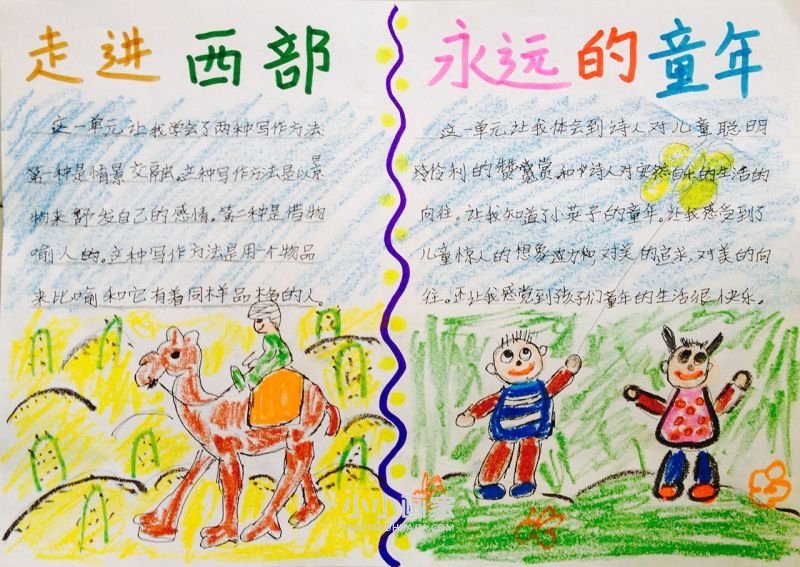 走进西部
这一单元让我学会了两种写作方法
第一种是情景交融。这种写作方法是以景
物来舒发自己的感情。第二种是借物
喻人的。这种写作方法是用一个物品
来比喻和它有着同样品格的人。
永远的童年
这一单元让我体会到诗人对儿童聪明
玲伶利的赞赏和诗人对安然自乐的生活的
向往。让我知道了小英子的童年。让我感受到了
儿童惊人的想象力和对美的追求,对美的向
往。还让我感觉到孩子们童年的生活很快乐。